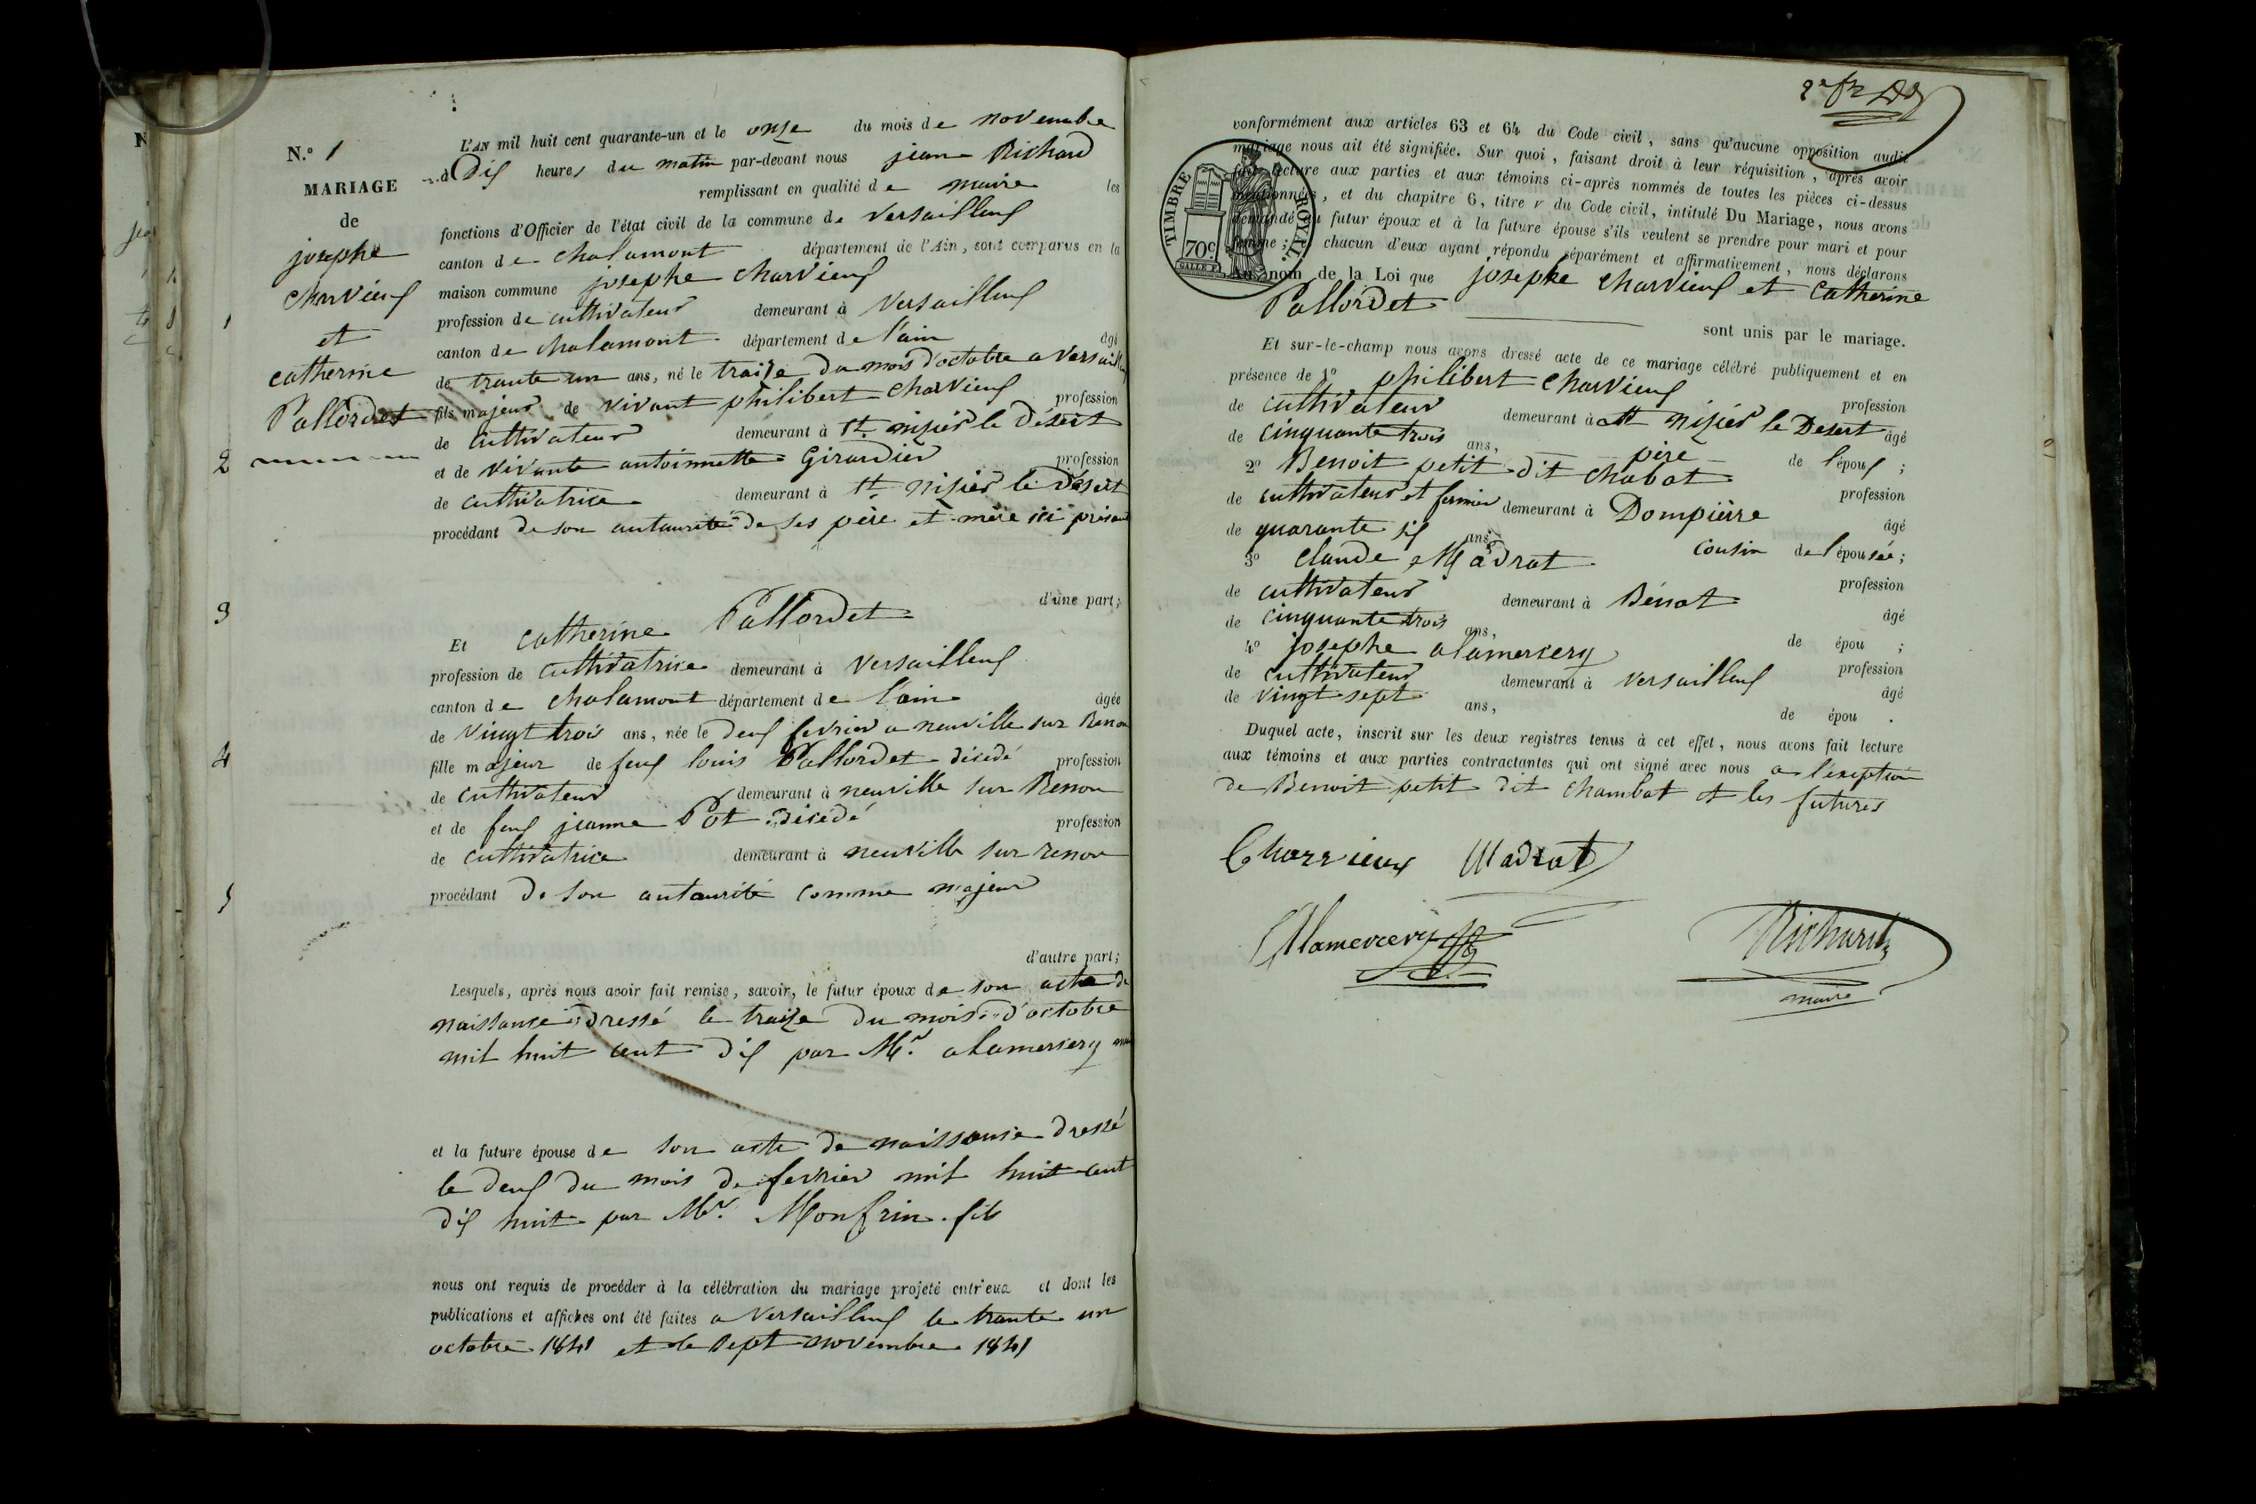 N.º 1
MARIAGE
de
josephe
charvieux
et
catherine
Pallordet
1
2
3
4
5
L'AN mil huit cent quarante-un et le onze du mois de novembre
à Dix heures du matin par-devant nous jean Richard
remplissant en qualité de maire les
fonctions d'Officier de l'état civil de la commune de Versailleux
canton de chalamont département de l'Ain, sont comparus en la
maison commune josephe charvieux
profession de cultivateur demeurant à Versailleux
canton de chalamont département de l'ain âgé
de trante un ans, né le traize du mois d'octobre a Versailleux
fils majeur de vivant philibert charvieux profession
de cultivateur demeurant à St. nizier le désert
et de vivante antoinnette Girardier profession
de cultivatrice demeurant à St. nizier le Désert
procédant de son autaurité de ses père et mère ici présant
d'une part;
Et catherine Pallordet
profession de cultivatrice demeurant à Versailleux
canton de chalamont département de l'ain âgée
de vingt trois ans, née le deux fevrier a neuville sur Renon
fille majeur de feux louis Pallordet décédé profession
de cultivateur demeurant à neuville sur Renon
et de feux jeanne Pot décédé profession
de cultivatrice demeurant à neuville sur renon
procédant de son autaurité comme majeur
d'autre part;
Lesquels, après nous avoir fait remise, savoir, le futur époux de son acte de
naissance dressé le traize du mois d'octobre
mil huit cent dix par Mr. alamercery
et la future épouse de son acte de naissance dressé
le deux du mois de fevrier mil huit cent
dix huit par Mr. Monfrin fils
nous ont requis de procéder à la célébration du mariage projeté entr'eux et dont les
publications et affiches ont été faites a Versailleux le trante un
octobre 1841 et le sept novembre 1841
TIMBRE ROYAL.
70 c.
conformément aux articles 63 et 64 du Code civil, sans qu'aucune opposition audit
mariage nous ait été signifiée. Sur quoi, faisant droit à leur réquisition, après avoir
fait lecture aux parties et aux témoins ci-après nommés de toutes les pièces ci-dessus
mentionnées, et du chapitre 6, titre v du Code civil, intitulé Du Mariage, nous avons
demandé au futur époux et à la future épouse s'ils veulent se prendre pour mari et pour
femme; et chacun d'eux ayant répondu séparément et affirmativement, nous déclarons
au nom de la Loi que josephe charvieux et Catherine
Pallordet
sont unis par le mariage.
Et sur-le-champ nous avons dressé acte de ce mariage célébré publiquement et en
présence de 1º philibert charvieux profession
de cultivateur demeurant à St nizier le Desert âgé
de cinquante trois ans, père de l'époux;
2º Benoit petit dit chabat profession
de cultivateur et fermier demeurant à Dompierre âgé
de quarante six ans, cousin de l'épousée;
3º claude Madrat profession
de cultivateur demeurant à Bérrot âgé
de cinquante trois ans, de épou ;
4º josephe alamercery profession
de cultivateur demeurant à Versailleux âgé
de vingt sept ans, de épou .
Duquel acte, inscrit sur les deux registres tenus à cet effet, nous avons fait lecture
aux témoins et aux parties contractantes qui ont signé avec nous a l'exeption
de Benoit petit dit chambat et les futures
Charvieux Madrat
Alamercery Richard
maire